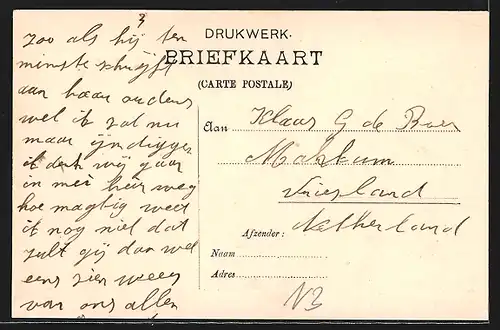 3
DRUKWERK.
BRIEFKAART
(CARTE POSTALE)
zoo als hij ten
minste schrijft
aan haar ouders
wel ik zal nu
maar
ik denk wij gaan
in mei hier weg
hoe magtig weet
ik nog niet dat
zult gij dan wel
eens zien weer
van ons allen
Aan Klaas G de Boer
Makkum
Vriesland
Netherland
Afzender:
Naam
Adres
N3